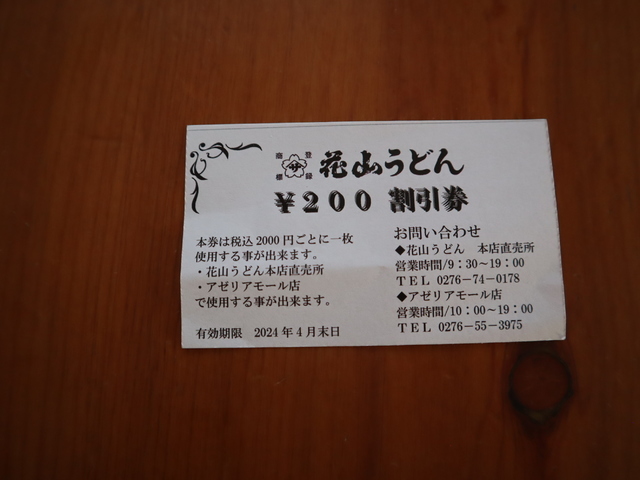 登録
商標
花山うどん
¥200 割引券
本券は税込2000円ごとに一枚
使用する事が出来ます。
・花山うどん本店直売所
・アゼリアモール店
で使用する事が出来ます。
有効期限 2024年4月末日
お問い合わせ
◆花山うどん 本店直売所
営業時間/9:30～19:00
TEL 0276-74-0178
◆アゼリアモール店
営業時間/10:00～19:00
TEL 0276-55-3975